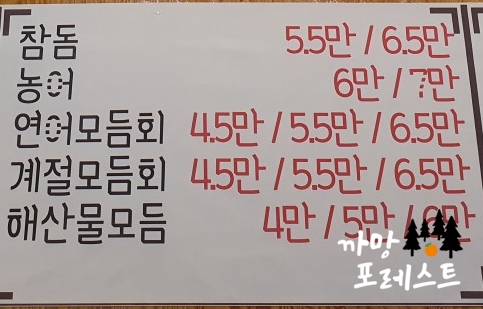 참돔 5.5만 / 6.5만
농어 6만 / 7만
연어모듬회 4.5만 / 5.5만 / 6.5만
계절모듬회 4.5만 / 5.5만 / 6.5만
해산물모듬 4만 / 5만 / 6만
까망
포레스트